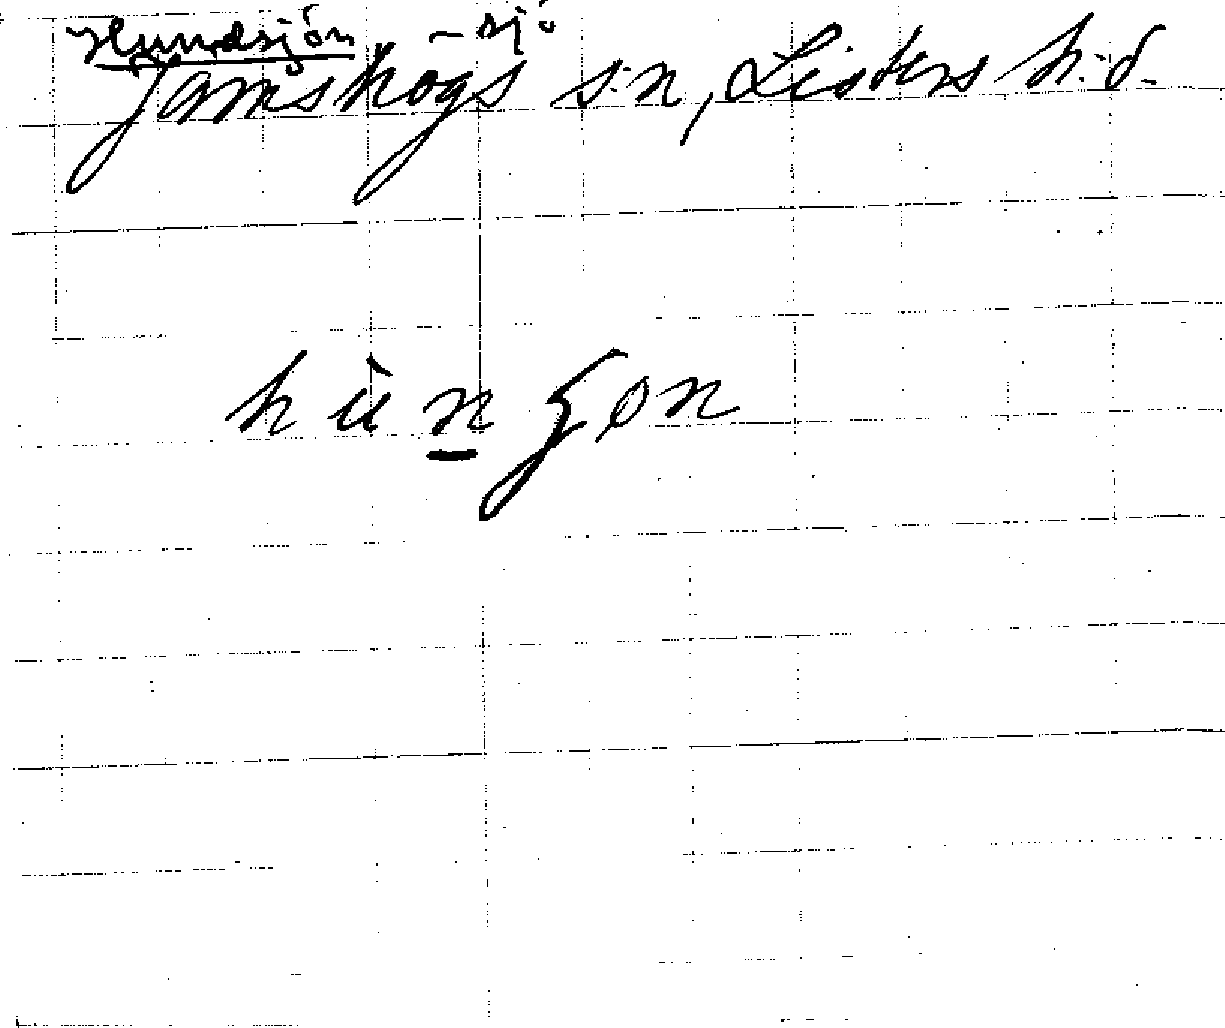 Hundsjön, -sjö
Jämshögs s:n, Listers h:d.
hùn̲ʒøn